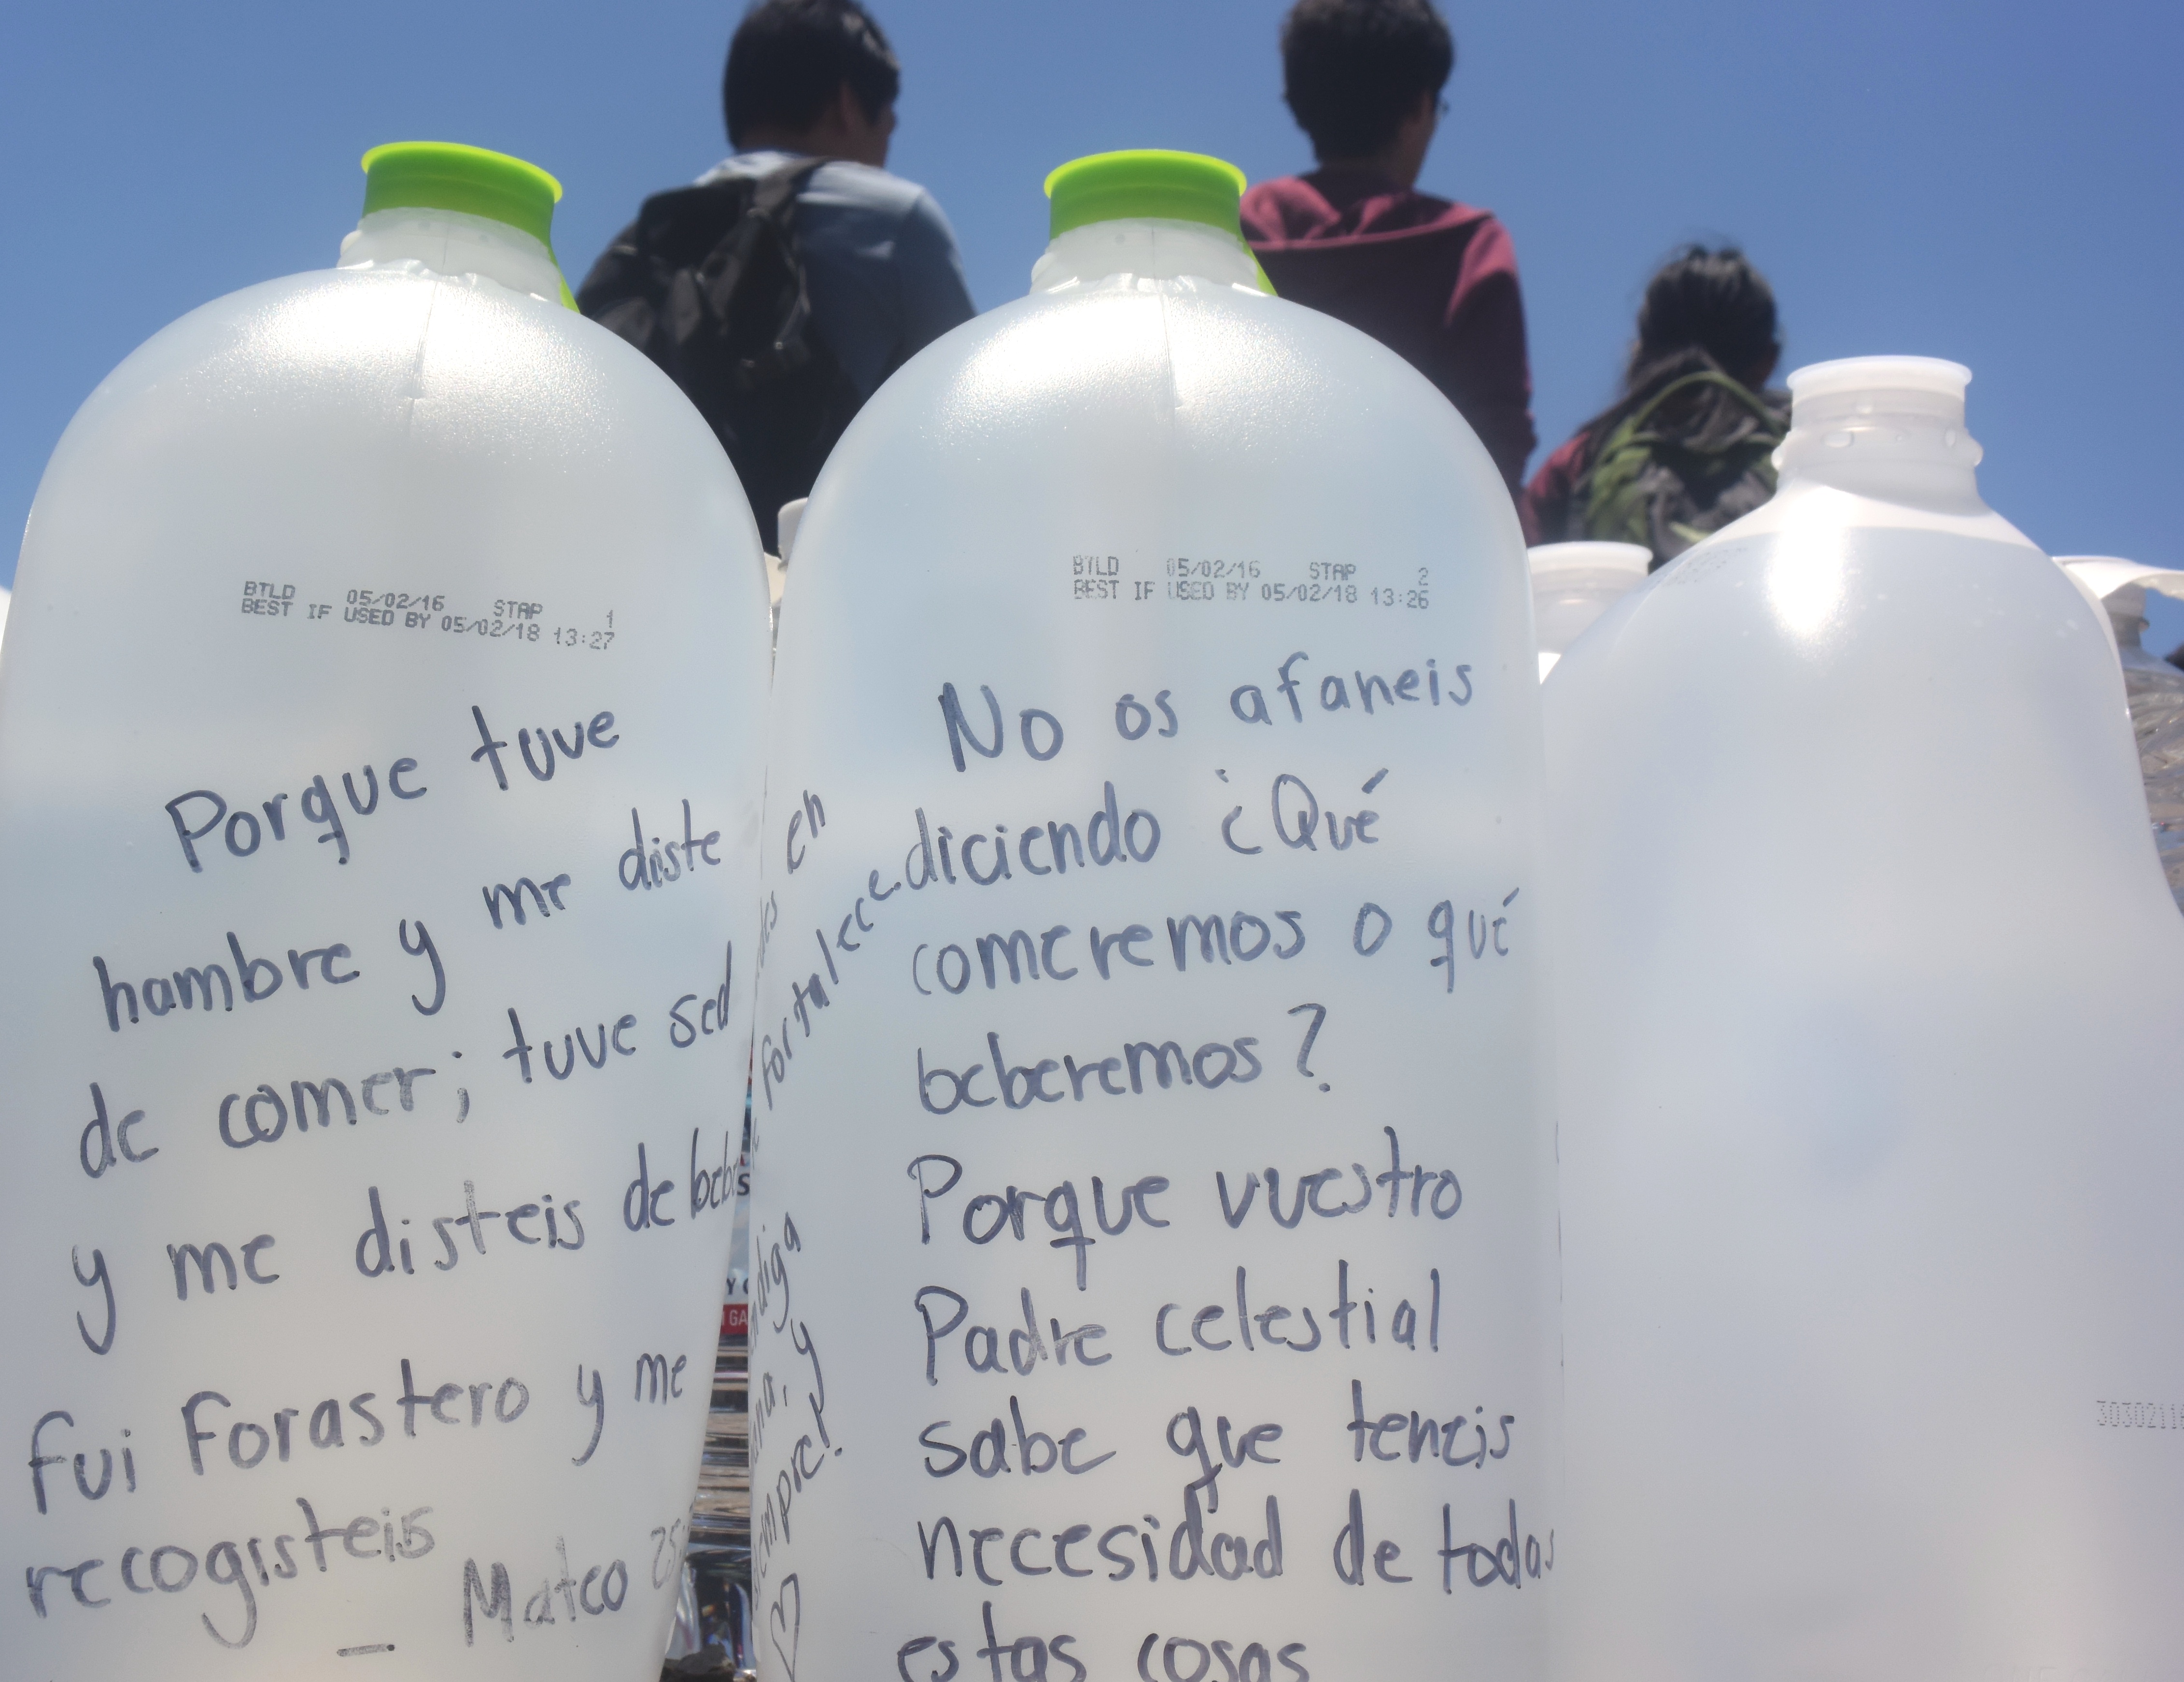 BTLD 05/02/16 STAP 1
BEST IF USED BY 05/02/18 13:27
Porque tuve
hambre y me diste
de comer; tuve sed
y me disteis de
fui Forastero y me
recogisteis
— Mateo
BTLD 05/02/16 STAP 2
BEST IF USED BY 05/02/18 13:26
No os afaneis
diciendo ¿Qué
comeremos o qué
beberemos?
Porque vuestro
Padre celestial
sabe que teneis
necesidad de todas
estas cosas
en
fortalecce.
y
siempre!